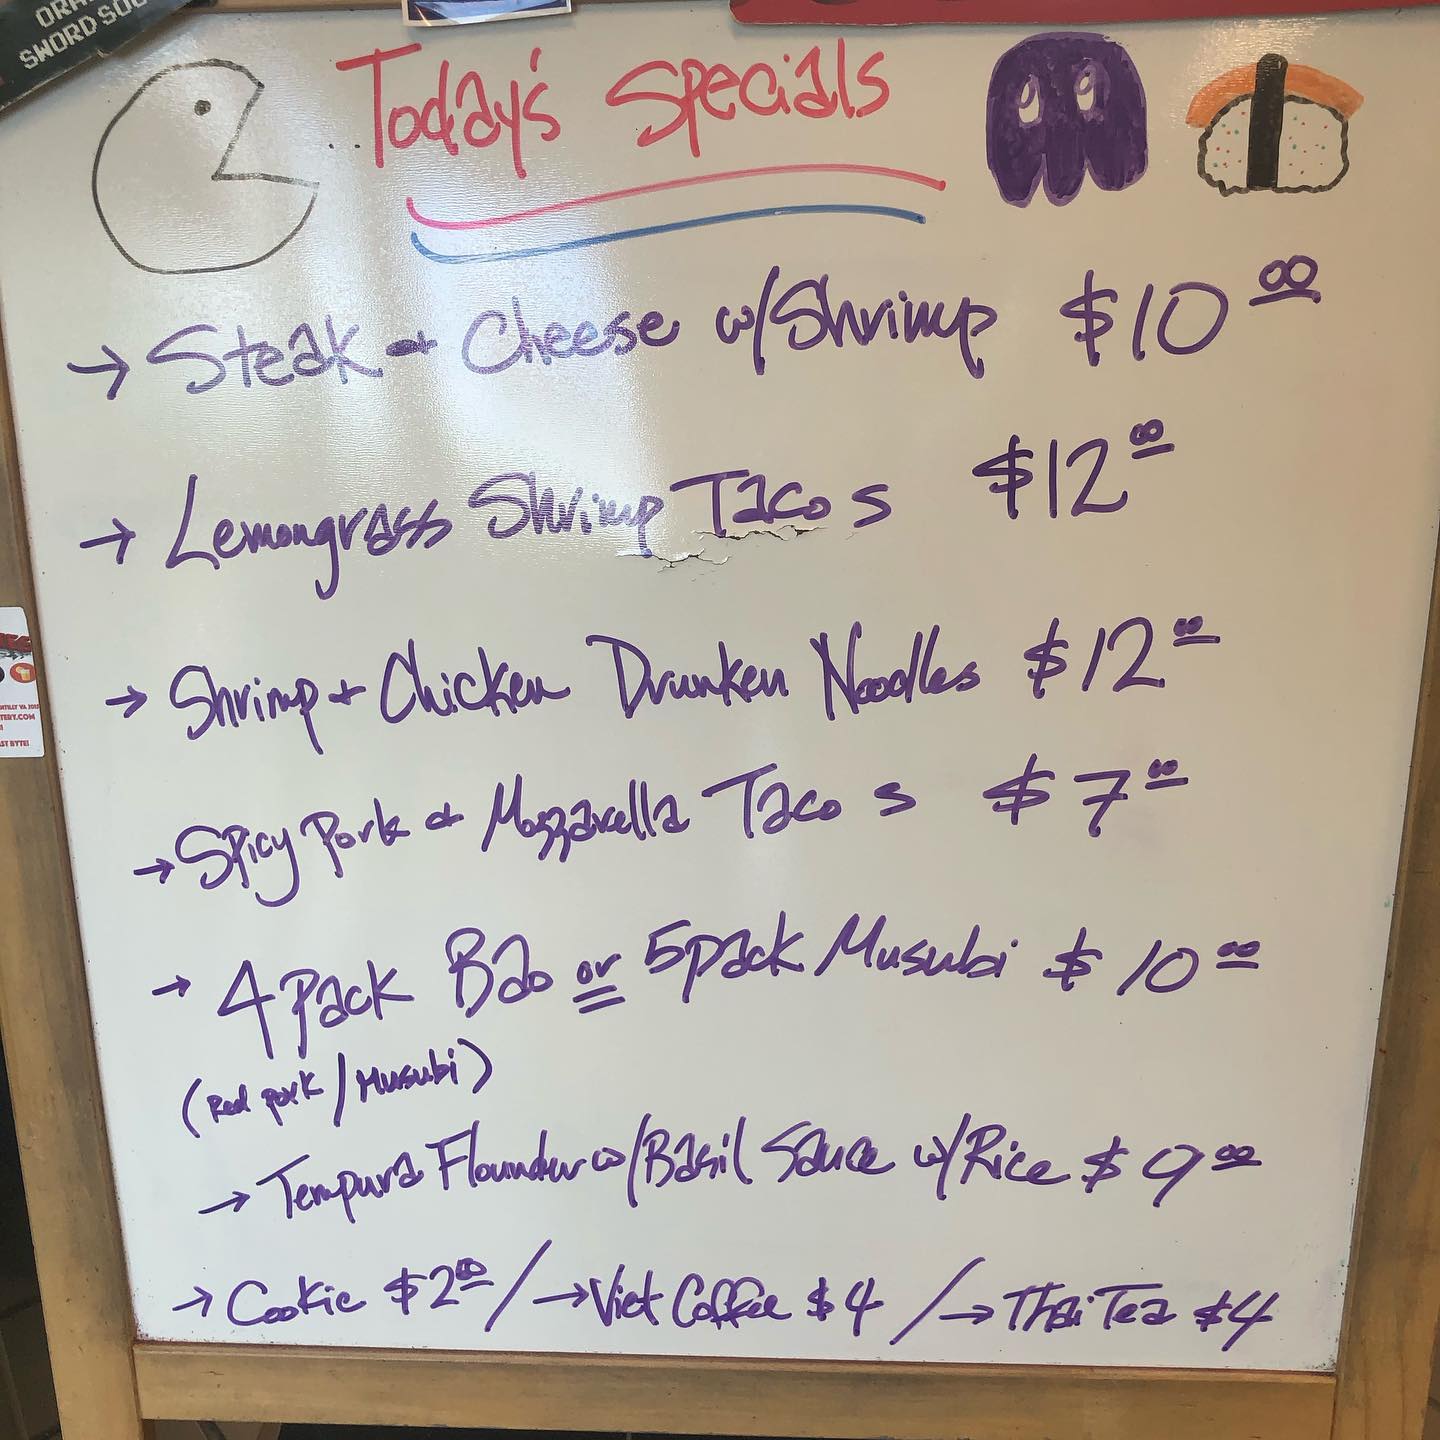 SWORD SOU
Today's Specials
→ Steak + Cheese w/Shrimp $10.00
→ Lemongrass Shrimp Tacos $12.00
→ Shrimp + Chicken Drunken Noodles $12.00
→ Spicy Pork + Mozzarella Tacos $7.00
→ 4 Pack Bao or 5 pack Musubi $10.00
(Red pork / Musubi)
→ Tempura Flounder w/Basil Sauce w/Rice $9.00
→ Cookie $2.00 / → Viet Coffee $4 / → Thai Tea $4
NTILLY VA 2015
TERY.COM
AST BYTE!